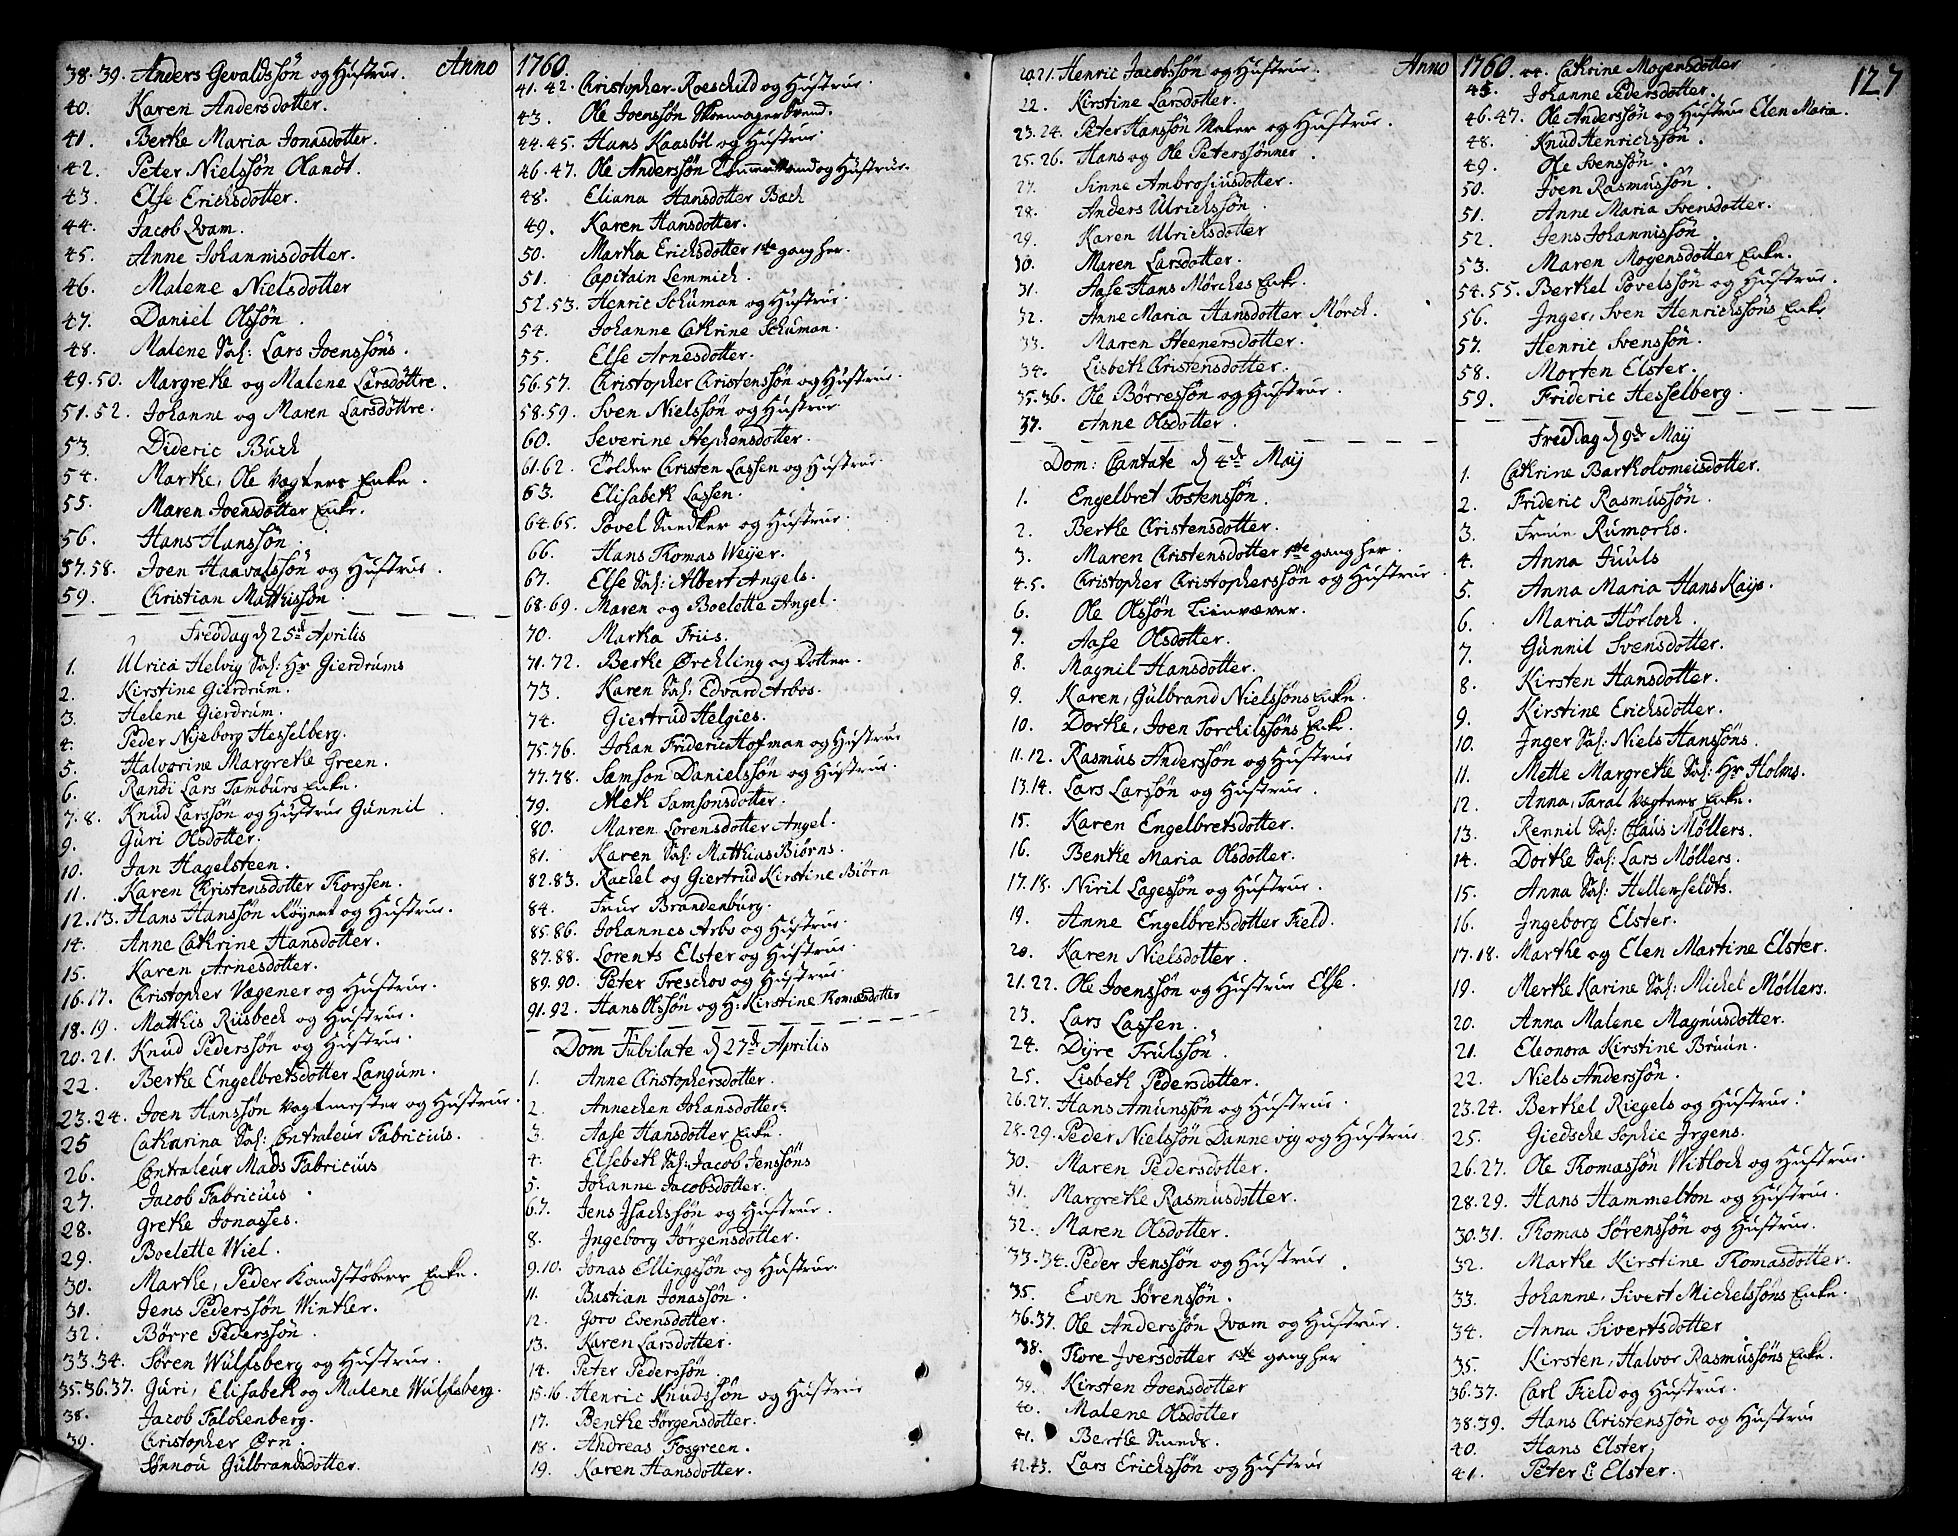 Anno
38. 39. Anders Gevaldssøn og Hustrue.
40. Karen Andersdotter.
41. Berthe Maria Jonasdotter.
42. Peter Nielssøn Olandt.
43. Else Erichsdotter.
44. Jacob Qvam.
45. Anne Johannisdotter.
46. Malene Nielsdotter
47. Daniel Olssøn.
48. Malene Sal: Lars Joenssøns.
49. 50. Margrethe og Malene Larsdøttre.
51. 52. Johanne og Maren Larsdøttre.
53. Dideric Buch
54. Marthe, Ole Vegters Enke.
55. Maren Joensdotter Enke.
56. Hans Hanssøn.
57. 58. Joen Haavalssøn og Hustrue.
59. Christian Matthissøn
Freddag d 25de Aprilis
1. Ulrica Helvig Sal: Hr Gierdrums
2. Kirstine Gierdrum.
3. Helene Gierdrum.
4. Peder Nyeborg Hesselberg.
5. Halvorine Margrethe Green.
6. Randi Lars Tamburs Enke.
7. 8. Knud Larssøn og Hustrue Gunnil
9. Guri Olsdotter.
10. Jan Hagelsteen.
11. Karen Christensdotter Thorssen.
12. 13. Hans Hanssøn Røyert og Hustrue.
14. Anne Cathrine Hansdotter.
15. Karen Arnesdotter.
16. 17. Christopher Vegener og Hustrue.
18. 19. Matthis Riisbech og Hustrue.
20. 21. Knud Pederssøn og Hustrue.
22. Berthe Engelbretsdotter Langum.
23. 24. Joen Hanssøn Vagtmester og Hustrue.
25 Catharina Sal: Contraleur Fabricius.
26. Contraleur Mads Fabricius
27. Jacob Fabricius.
28. Grethe Jonasses.
29. Boelette Wiel.
30. Marthe, Peder Kandstøbers Enke.
31. Jens Pederssøn Winther.
32. Børre Pederssøn.
33. 34. Søren Wulfsberg og Hustrue.
35. 36. 37. Guri, Elisabeth og Malene Wulfsberg.
38. Jacob Falchenberg.
39. Christopher Ørn.
Sønnou Gulbrandsdotter.
1760
41. 42. Christopher Roeschild og Hustrue
43. Ole Joenssøn Skomagersvend.
44. 45. Hans Kaasbøl og Hustrue
46. 47. Ole Anderssøn Tømmermand og Hustrue.
48. Eliana Hansdotter Bach
49. Karen Hansdotter.
50. Martha Erichsdotter 1ste gang her.
51. Capitain Lemmich.
52. 53. Henric Schuman og Hustrue.
54. Johanne Cathrine Schuman.
55. Else Arnesdotter.
56. 57. Christopher Christenssøn og Hustrue.
58. 59. Sven Nielssøn og Hustrue
60. Severine Stephensdotter.
61. 62. Tolder Christen Lassen og Hustrue.
63. Elisabeth Lassen.
64. 65. Povel Snedker og Hustrue.
66. Hans Thomas Weyer.
67. Else Sal: Albert Angels.
68. 69. Maren og Boelette Angel.
70. Martha Friis.
71. 72. Berthe Ørchling og Dotter.
73. Karen Sal: Edvard Arbos.
74. Giertrud Helgies.
75. 76. Johan Frideric Hofman og Hustrue
77. 78. Samson Danielssøn og Hustrue.
79. Aleth Samsonsdotter.
80. Maren Lorensdotter Angel.
81. Karen Sal: Matthias Biørns.
82. 83. Rachel og Giertrud Kirstine Biørn
84. Frue Brandenburg.
85. 86. Johannes Arbo og Hustrue.
87. 88. Lorents Elster og Hustrue.
89. 90. Peter Treschov og Hustrue.
91. 92. Hans Olssøn og H: Kirstine Thomesdotter
Dom Jubilate d 27de Aprilis
1. Anne Christophersdotter.
2. Annechen Johansdotter.
3. Aase Hansdotter Enke.
4. Elsebeth Sal: Jacob Jenssøns
5. Johanne Jacobsdotter.
6. 7. Jens Isachssøn og Hustrue.
8. Ingeborg Jørgensdotter.
9. 10. Jonas Ellingssøn og Hustrue.
11. Bastian Jonassøn.
12. Goro Evensdotter.
13. Karen Larsdotter.
14. Peter Pederssøn.
15. 16. Henric Knudssøn og Hustrue
17. Benthe Jørgensdotter.
18. Andreas Fosgreen.
19. Karen Hansdotter.
Anno
20. 21. Henric Jacobssøn og Hustrue.
22. Kirstine Larsdotter.
23. 24. Peter Hanssøn Maler og Hustrue.
25. 26. Hans og Ole Peterssønner.
27. Sinne Ambrosiusdotter.
28. Anders Ulrichssøn.
29. Karen Ulrichsdotter
30. Maren Larsdotter.
31. Aase Hans Mørches Enke.
32. Anne Maria Hansdotter Mørch.
33. Maren Steenersdotter.
34. Lisbeth Christensdotter.
35. 36. Ole Børressøn og Hustrue.
37. Anne Olsdotter.
Dom: Cantate d 4de Maij
1. Engelbret Tostenssøn.
2. Berthe Christensdotter.
3. Maren Christensdotter 1ste gang her.
4. 5. Christopher Christopherssøn og Hustrue
6. Ole Olssøn Liinvæver.
7. Aase Olsdotter.
8. Magnil Hansdotter.
9. Karen, Gulbrand Nielssøns Enke.
10. Dorthe, Joen Torchilssøns Enke.
11. 12. Rasmus Anderssøn og Hustrue
13. 14. Lars Larssøn og Hustrue.
15. Karen Engelbretsdotter.
16. Benthe Maria Olsdotter.
17. 18. Niril Lagessøn og Hustrue.
19. Anne Engelbretsdotter Field.
20. Karen Nielsdotter.
21. 22. Ole Joenssøn og Hustrue Else.
23. Lars Lassen.
24. Dyre Trulssøn.
25. Lisbeth Pedersdotter.
26. 27. Hans Amunssøn og Hustrue.
28. 29. Peder Nielssøn Dannevig og Hustrue
30. Maren Pedersdotter.
31. Margrethe Rasmusdotter.
32. Maren Olsdotter.
33. 34. Peder Jenssøn og Hustrue
35. Even Sørenssøn.
36. 37. Ole Anderssøn Qvam og Hustrue.
38. Thore Iversdotter 1ste gang her
39. Kirsten Joensdotter
40. Malene Olsdotter
41. Berthe Smeds.
42. 43. Lars Erichssøn og Hustrue
1760. 127
44. Cathrine Mogensdotter
45. Johanne Pedersdotter.
46. 47. Ole Anderssøn og Hustrue Elen Maria.
48. Knud Henrichssøn.
49. Ole Svenssøn.
50. Joen Rasmussøn.
51. Anne Maria Svensdotter.
52. Jens Johannissøn.
53. Maren Mogensdotter Enke.
54. 55. Berthel Povelssøn og Hustrue.
56. Inger, Sven Henrichssøns Enke
57. Henric Svenssøn.
58. Morten Elster.
59. Frideric Hesselberg.
Freddag d 9de Maij
1. Cathrine Bartholomeisdotter.
2. Frideric Rasmussøn.
3. Frue Rumorhs.
4. Anna Juuls
5. Anna Maria Hans Kays.
6. Maria Hørloch.
7. Gunnil Svensdotter.
8. Kirsten Hansdotter.
9. Kirstine Erichsdotter.
10. Inger Sal: Niels Hanssøns.
11. Mette Margrethe Sal: Hr Holms.
12. Anna, Taral Vegters Enke.
13. Rennil Sal: Claus Møllers.
14. Dorthe Sal: Lars Møllers.
15. Anna Sal: Hellerfeldts.
16. Ingeborg Elster.
17. 18. Marthe og Elen Martine Elster.
19. Merthe Karine Sal: Michel Møllers.
20. Anna Malene Magnusdotter.
21. Eleonora Kirstine Bruun.
22. Niels Anderssøn.
23. 24. Berthel Riegels og Hustrue.
25. Giedsche Sophie Irgens.
26. 27. Ole Thomassøn Witloch og Hustrue.
28. 29. Hans Hammelton og Hustrue.
30. 31. Thomas Sørenssøn og Hustrue.
32. Marthe Kirstine Thomasdotter.
33. Johanne, Sivert Michelssøns Enke.
34. Anna Sivertsdotter
35. Kirsten, Halvor Rasmussøns Enke.
36. 37. Carl Field og Hustrue.
38. 39. Hans Christenssøn og Hustrue
40. Hans Elster,
41. Peter L Elster.